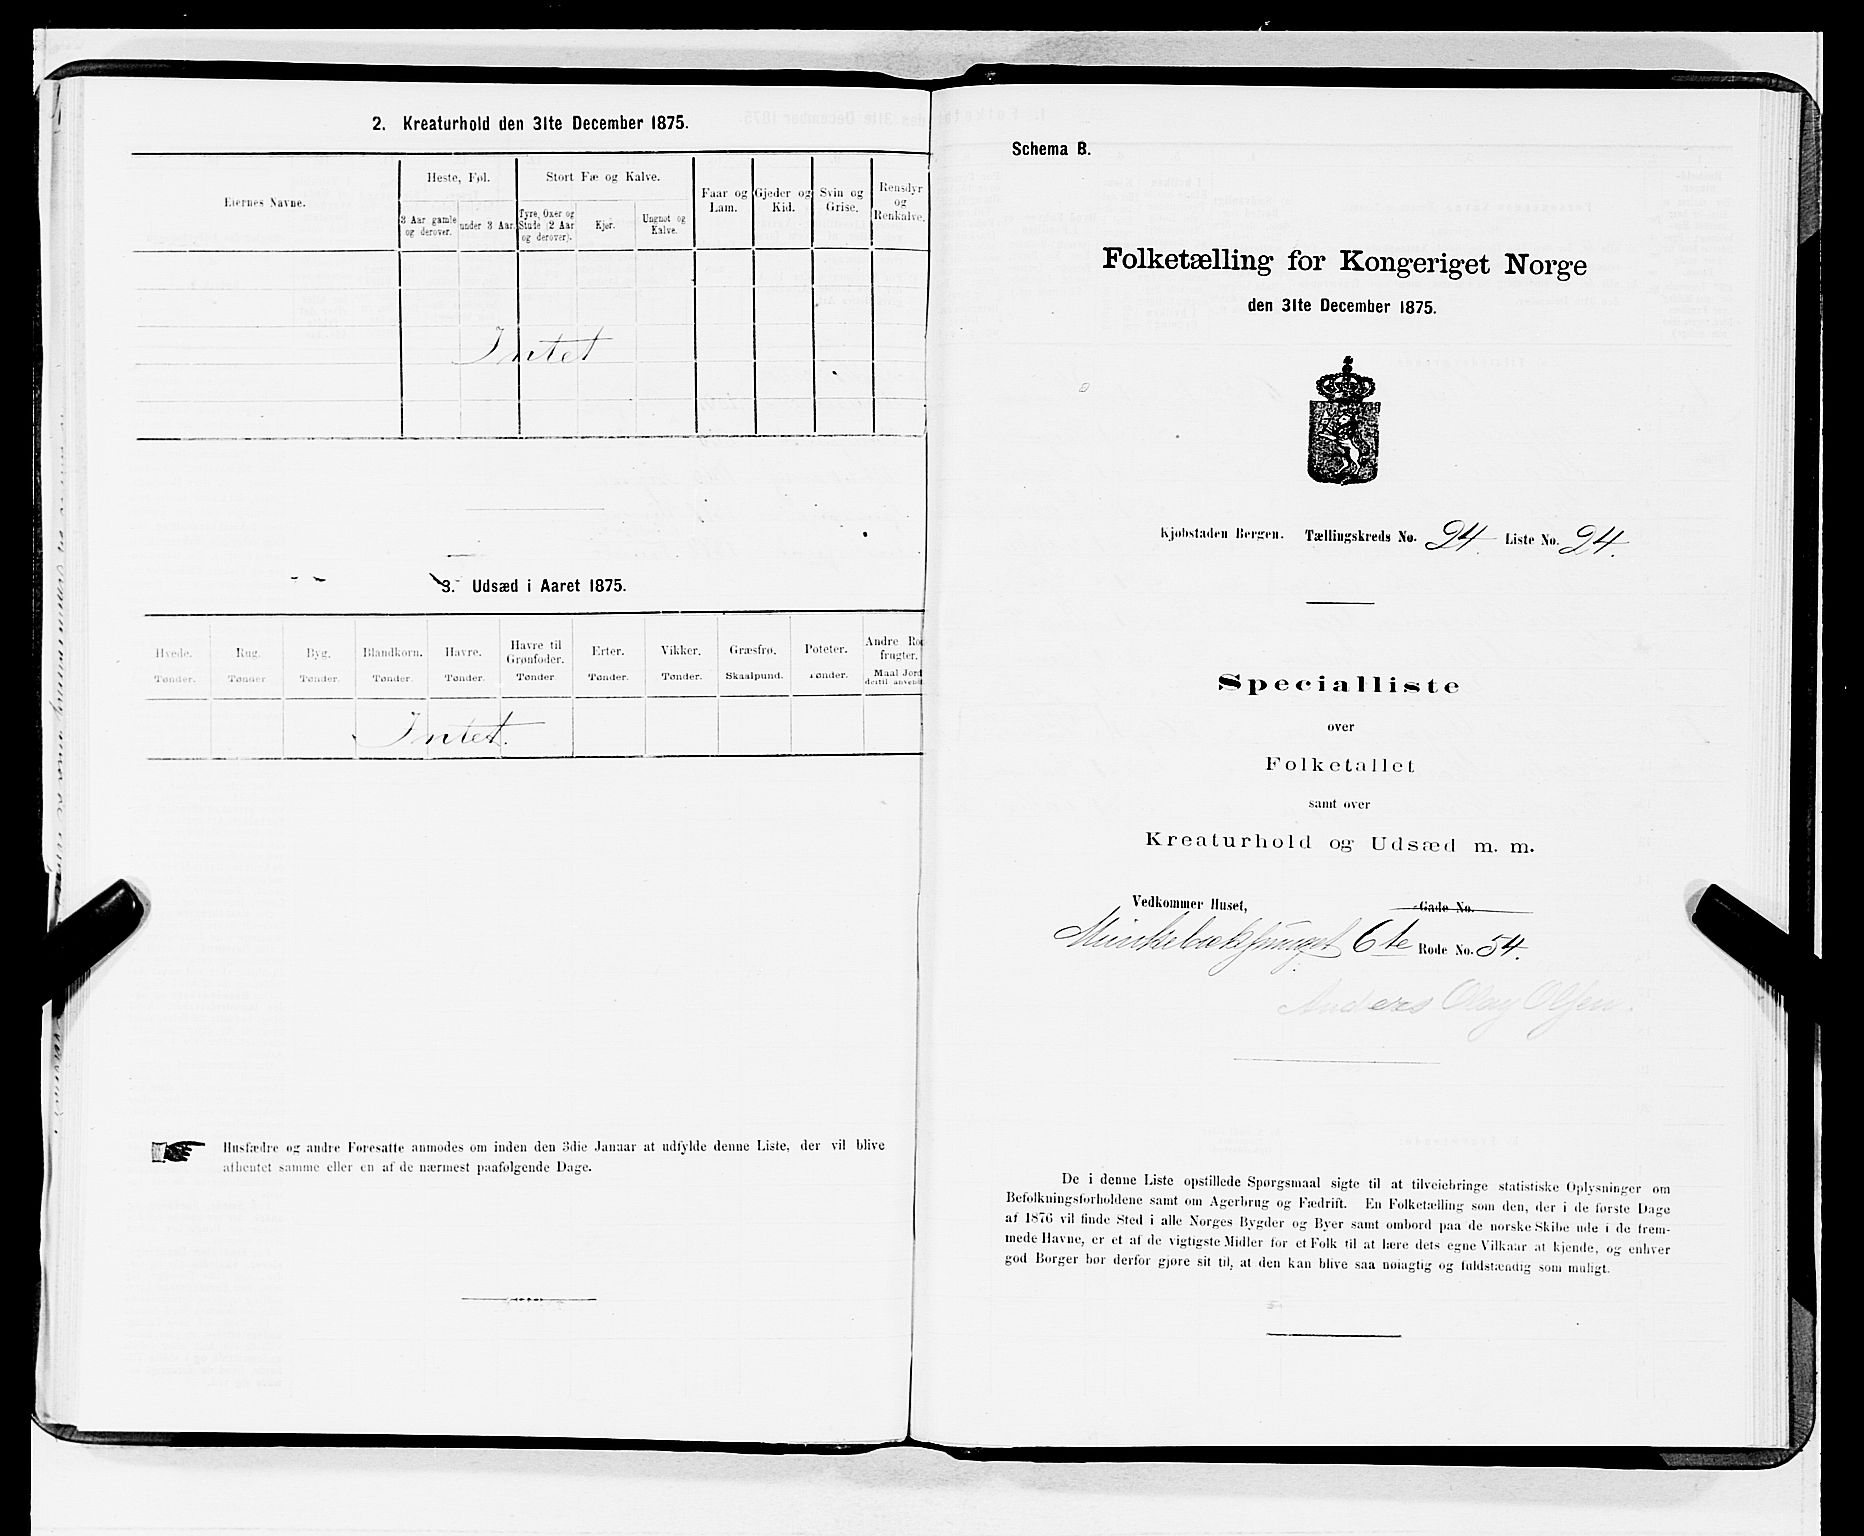 2. Kreaturhold den 31te December 1875.
Eiernes Navne.
Heste, Føl.
Stort Fæ og Kalve.
Faar og Lam.
Gjeder og Kid.
Svin og Grise.
Rensdyr og Renkalve.
3 Aar gamle og derover.
under 3 Aar.
Tyre, Oxer og Stude (2 Aar og derover).
Kjør.
Ungnot og Kalve.
Intet
3. Udsæd i Aaret 1875.
Hvede. Rug. Byg. Blandkorn. Havre. Havre til Grønfoder. Erter. Vikker. Græsfrø. Poteter. Andre Rodfrugter.
Tønder. Tønder. Tønder. Tønder. Tønder. Tønder. Tønder. Tønder. Skaalpund. Tønder. Maal Jord dertil anvendt
Intet.
Husfædre og andre Foresatte anmodes om inden den 3die Januar at udfylde denne Liste, der vil blive
afhentet samme eller en af de nærmest paafølgende Dage.
Schema B.
Folketælling for Kongeriget Norge
den 31te December 1875.
Kjøbstaden Bergen. Tællingskreds No. 24. Liste No. 24.
Specialliste
over
Folketallet
samt over
Kreaturhold og Udsæd m. m.
Vedkommer Huset, Gade No.
6te Rode No. 54.
Anders Olay Olsen.
De i denne Liste opstillede Spørgsmaal sigte til at tilveiebringe statistiske Oplysninger om
Befolkningsforholdene samt om Agerbrug og Fædrift. En Folketælling som den, der i de første Dage
af 1876 vil finde Sted i alle Norges Bygder og Byer samt ombord paa de norske Skibe ude i de frem-
mede Havne, er et af de vigtigste Midler for et Folk til at lære dets egne Vilkaar at kjende, og enhver
god Borger bør derfor gjøre sit til, at den kan blive saa nøiagtig og fuldstændig som muligt.